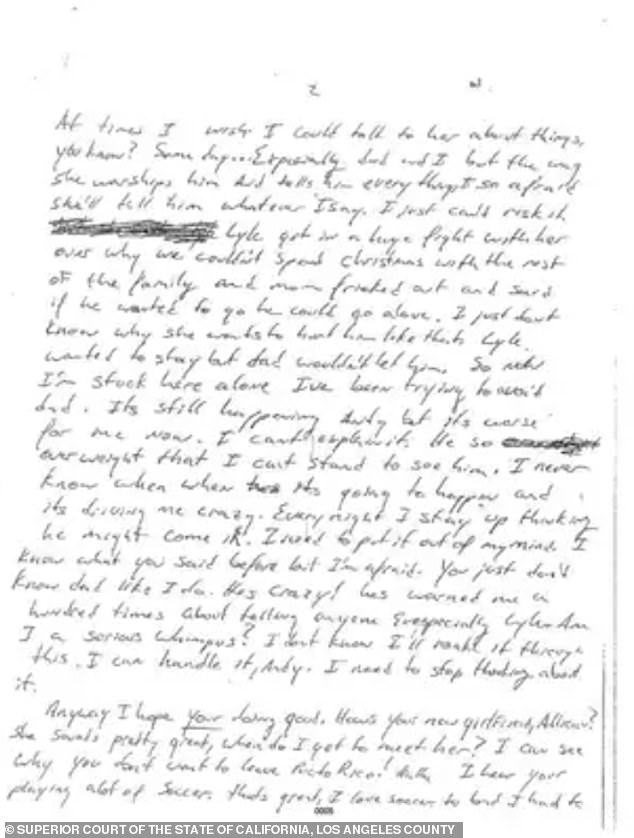 2
At times I wish I could talk to her about things,
you know? Some day... Expecially dad and I but the way
she worships him and tells him everything I so afraid
she'll tell him whatever I say. I just can't risk it.
Lyle got in a huge fight with her
over why we couldn't spend Christmas with the rest
of the family and mom freaked out and said
if he wanted to go he could go alone. I just dont
know why she wants to hurt him like that. Lyle
wanted to stay but dad wouldn't let him. So now
I'm stuck here alone I've been trying to avoid
dad. Its still happening Andy but its worse
for me now. I can't explain it. He so
overweight that I cant stand to see him. I never
know when its going to happen and
its driving me crazy. Every night I stay up thinking
he might come in. I need to put it out of my mind. I
know what you said before but I'm afraid. You just don't
know dad like I do. Hes crazy! hes warned me a
hundred times about telling anyone expecially Lyle. Am
I a serious whimpus? I dont know I'll make it through
this. I can handle it, Andy. I need to stop thinking about
it.
Anyway I hope your doing good. Hows your new girlfriend,
She sounds pretty great, when do I get to meet her? I can see
why you dont want to leave Puerto Rico! I hear your
playing alot of soccer. thats great, I love soccer to but I had to
© SUPERIOR COURT OF THE STATE OF CALIFORNIA, LOS ANGELES COUNTY